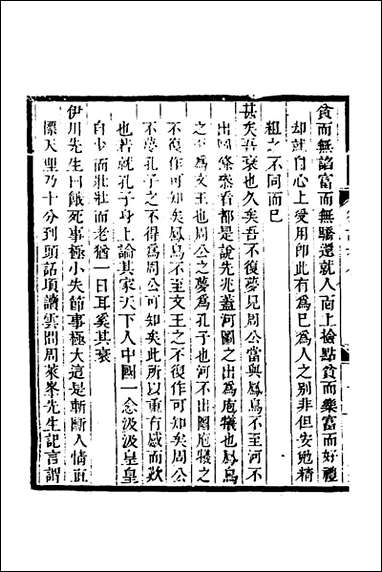 貧而無諂富而無驕還就人面上檢點貧而樂富而好禮
却就自心上受用即此有為已為人之別非但安勉精
粗之不同已
甚矣吾衰也久矣吾不復夢見周公當與鳳鳥不至河不
出圖條參看都是說先兆蓋河圖之出為庖犧也鳳鳥
之至為文王也周公之夢為孔子也河不出圖庖犧之
不復作可知矣鳳鳥不至文王之不復作可知矣周公
不夢孔子之不得為周公可知矣此所以重有感而歎
也若就孔子身上論其家天下人中國一念汲汲皇皇
自少而壯壯而老猶一日耳奚其衰
伊川先生曰餓死事極小失節事極大這是斬斷人情直
標天理乃十分到頭話項讀雲間周萊峯先生記言謂